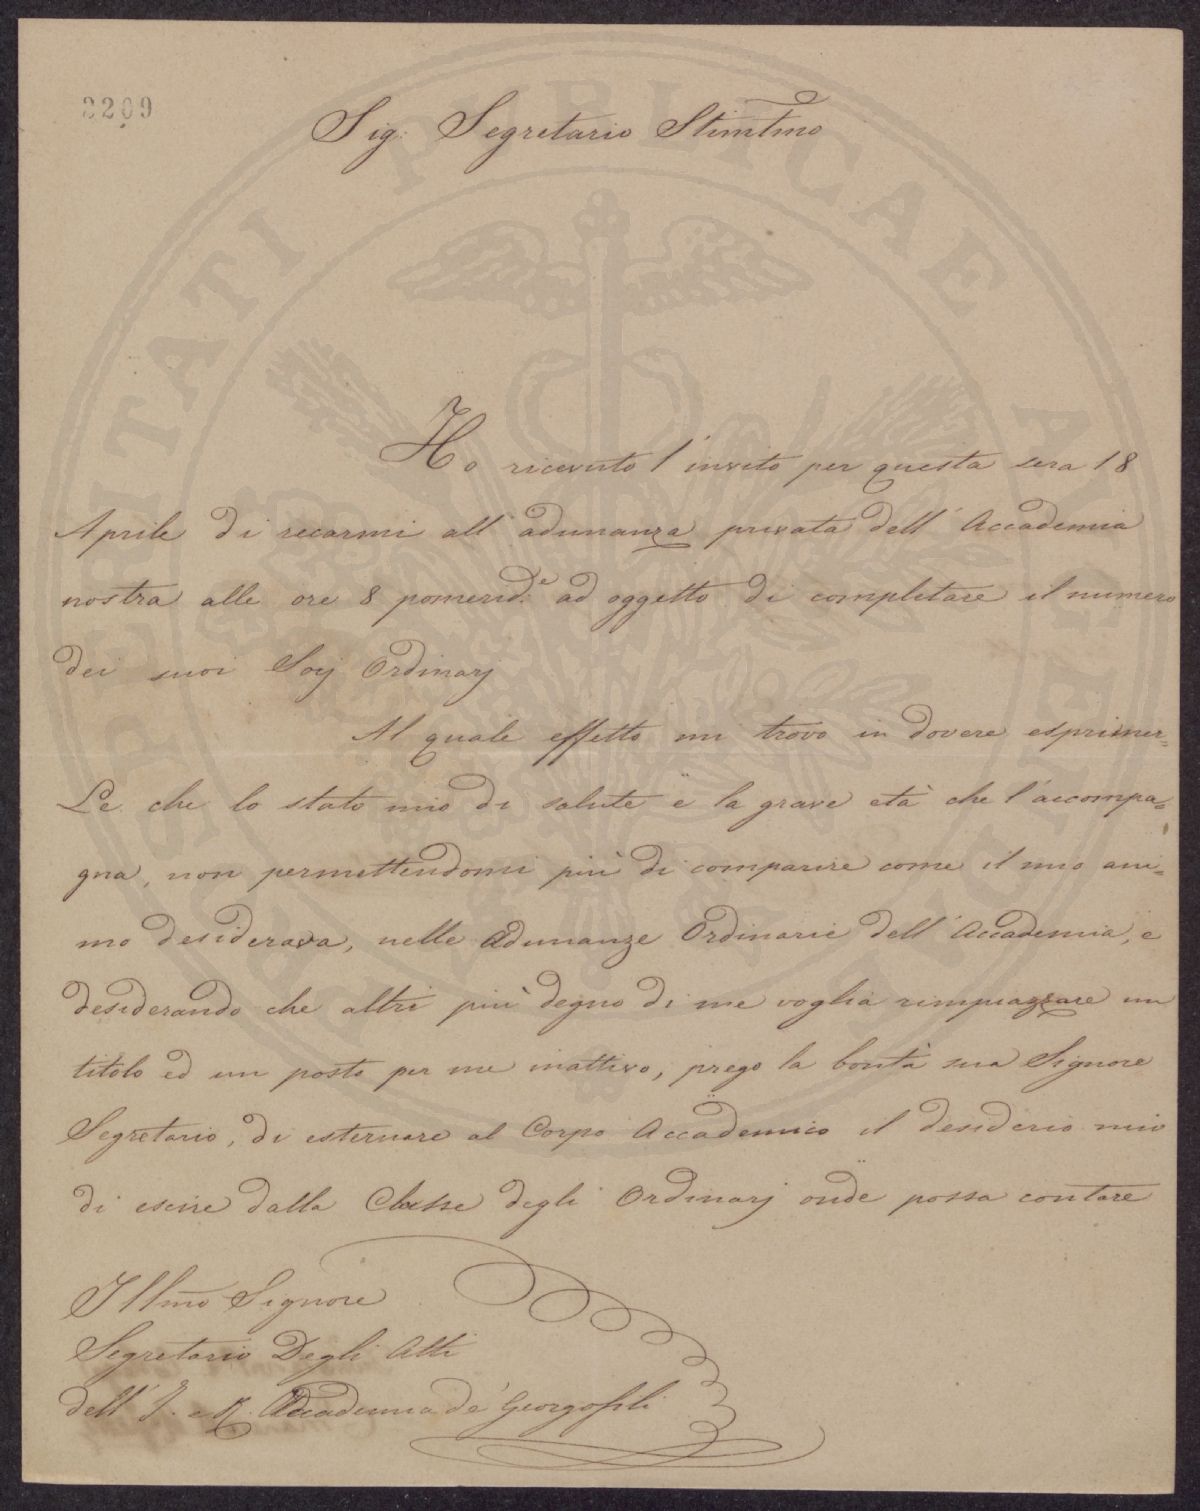 2209
Sig: Segretario Stimtmo
Ho ricevuto l'invito per questa sera 18
Aprile di recarmi all' adunanza privata dell' Accademia
nostra alle ore 8 pomerid.e ad oggetto di completare il numero
dei suoi Socj Ordinarj
Al quale effetto mi trovo in dovere esprimer=
Le che lo stato mio di salute e la grave età che l'accompa=
gna, non permettendomi più di comparire come il mio ani=
mo desiderava, nelle Adunanze Ordinarie dell' Accademia, e
desiderando che altri più degno di me voglia rimpiazzare un
titolo ed un posto per me inattivo, prego la bontà sua Signore
Segretario, di esternare al Corpo Accademico il desiderio mio
di escire dalla Classe degli Ordinarj onde possa contare
Illmo Signore
Segretario Degli Atti
dell' I. e R. Accademia de' Georgofili
PROSPERITATI PUBLICAE AUGENDAE